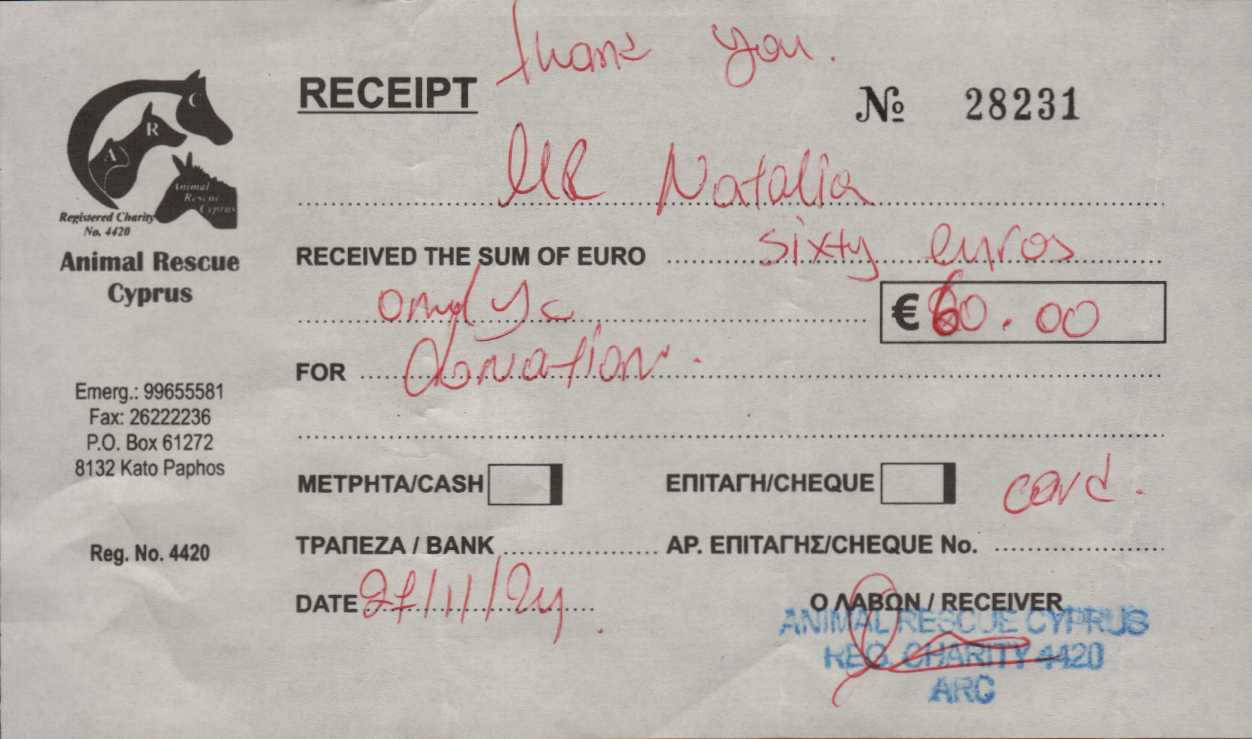 thank you.
RECEIPT
№ 28231
A R C
Animal
Rescue
Cyprus
Registered Charity
No. 4420
Animal Rescue
Cyprus
Natalia
RECEIVED THE SUM OF EURO sixty euros
€ 60.00
FOR donation.
Emerg.: 99655581
Fax: 26222236
P.O. Box 61272
8132 Kato Paphos
ΜΕΤΡΗΤΑ/CASH ΕΠΙΤΑΓΗ/CHEQUE card.
Reg. No. 4420
ΤΡΑΠΕΖΑ / BANK ΑΡ. ΕΠΙΤΑΓΗΣ/CHEQUE No.
DATE 27/11/24.
Ο ΛΑΒΩΝ / RECEIVER
ANIMAL RESCUE CYPRUS
REG. CHARITY 4420
ARC